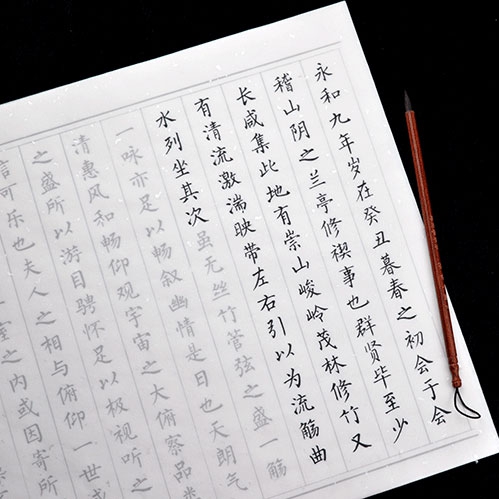 永和九年岁在癸丑暮春之初会于会
稽山阴之兰亭修禊事也群贤毕至少
长咸集此地有崇山峻岭茂林修竹又
有清流激湍映带左右引以为流觞曲
水列坐其次虽无丝竹管弦之盛一觞
一咏亦足以畅叙幽情是日也天朗气
清惠风和畅仰观宇宙之大俯察品类
之盛所以游目骋怀足以极视听之
信可乐也夫人之相与俯仰一世
室之内或因寄所